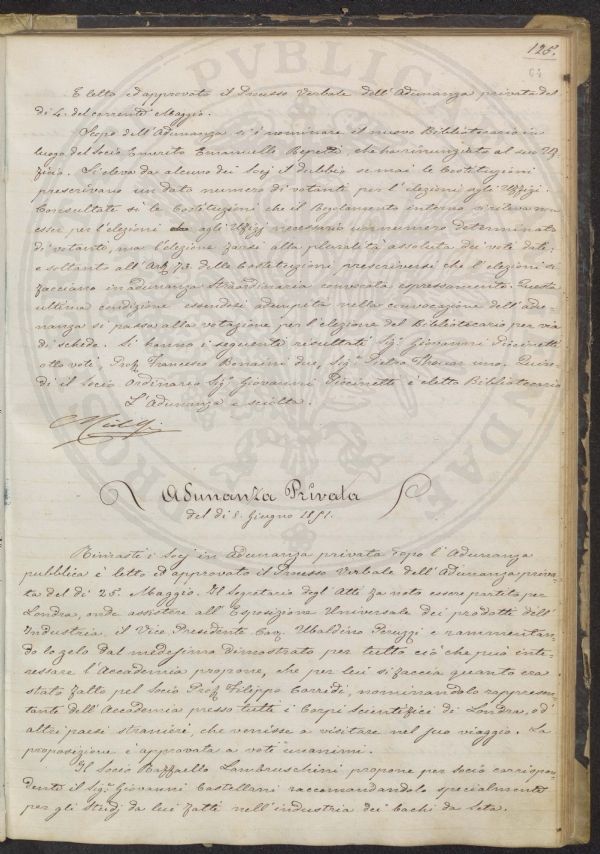 125.
64
È letto ed approvato il Processo Verbale dell'Adunanza privata del
dì 4. del corrente Maggio.
Scopo dell'Adunanza si è nominare il nuovo Bibliotecario in
luogo del Socio Emerito Emanuelle Repetti, che ha rinunziato al suo Uf=
fizio. Si eleva da alcuno dei Socj il dubbio se mai le Costituzioni
prescrivano un dato numero di votanti per l'elezioni agli Uffizj.
Consultate sì le Costituzioni che il Regolamento interno si rileva non
esser, per l'elezioni agli Uffizj necessario un numero determinato
di votanti, ma l'elezione farsi alla pluralità assoluta dei voti dati,
e soltanto all'Art. 73. delle Costituzioni prescriversi che l'elezioni si
facciano in adunanza straordinaria convocata espressamente. Questa
ultima condizione essendosi adempita nella convocazione dell'adu=
nanza si passa alla votazione per l'elezione del Bibliotecario per via
di schede. Si hanno i seguenti resultati Sig. Giovanni Piccinetti
otto voti, Prof. Francesco Bonaini due, Sig. Pietro Thouar uno. Quin=
di il Socio Ordinario Sig. Giovanni Piccinetti è eletto Bibliotecario
L'Adunanza è sciolta.
Adunanza Privata
del dì 8. Giugno 1851.
Rimasti i Socj in Adunanza privata dopo l'Adunanza
pubblica è letto ed approvato il Processo Verbale dell'Adunanza priva=
ta del dì 25. Maggio. Il Segretario degl'Atti fa noto essere partito per
Londra, onde assistere all'Esposizione Universale dei prodotti dell'
Industria il Vice Presidente Cav. Ubaldino Peruzzi e rammentan=
do lo zelo dal medesimo dimostrato per tutto ciò che può inte=
ressare l'Accademia propone, che per lui si faccia quanto era
stato fatto pel Socio Prof. Filippo Corridi, nominandolo rappresen=
tante dell'Accademia presso tutti i Corpi Scientifici di Londra, od
altri paesi stranieri, che venisse a visitare nel suo viaggio. La
proposizione è approvata a voti unanimi.
Il Socio Raffaello Lambruschini propone per socio corrispon=
dente il Sig. Giovanni Castellani raccomandandolo specialmente
per gli studj da lui fatti nell'industria dei bachi da Seta.